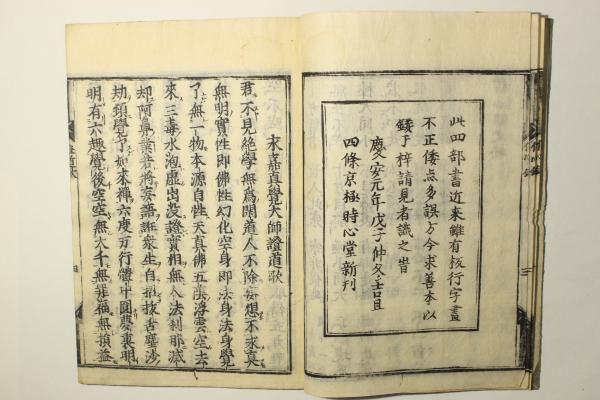 此四部書近来雖有板行字畫
不正倭点多誤方今求善本以
鋟于梓請見者識之旹
慶安元年戊子仲冬吉旦
四條京極時心堂新刊
永嘉真覺大師證道歌
君不見絶學無為閑道人不除妄想不求真
無明實性即佛性幻化空身即法身法身覺
了無一物本源自性天真佛五陰浮雲空去
來三毒水泡虚出没證實相無人法刹那滅
却阿鼻業若將妄語誑衆生自招拔舌塵沙
劫頓覺了如來禪六度万行體中圓夢裏明
明有六趣覺後空空無大千無罪福無損益